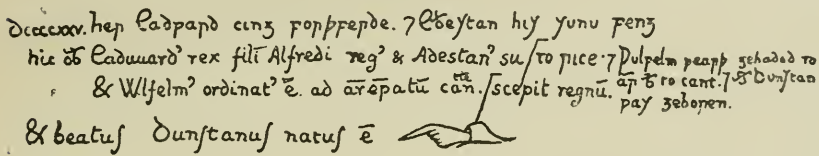 dccccxxv. her Eadpard cing forþferde. ⁊ Æþeſtan hiſ ſunu feng
hic ob̄ Eaduuard' rex filī Alfredi reg' & Adeſtan' su / to rice. ⁊ Ƿulfelm ƿearþ gehadod to
& Wlfelm' ordinat' ē. ad arēpatū cān. ſcepit regnū. to cant. ⁊ Dunſtan
ƿaſ geboren.
& beatuſ Dunſtanuſ natuſ ē